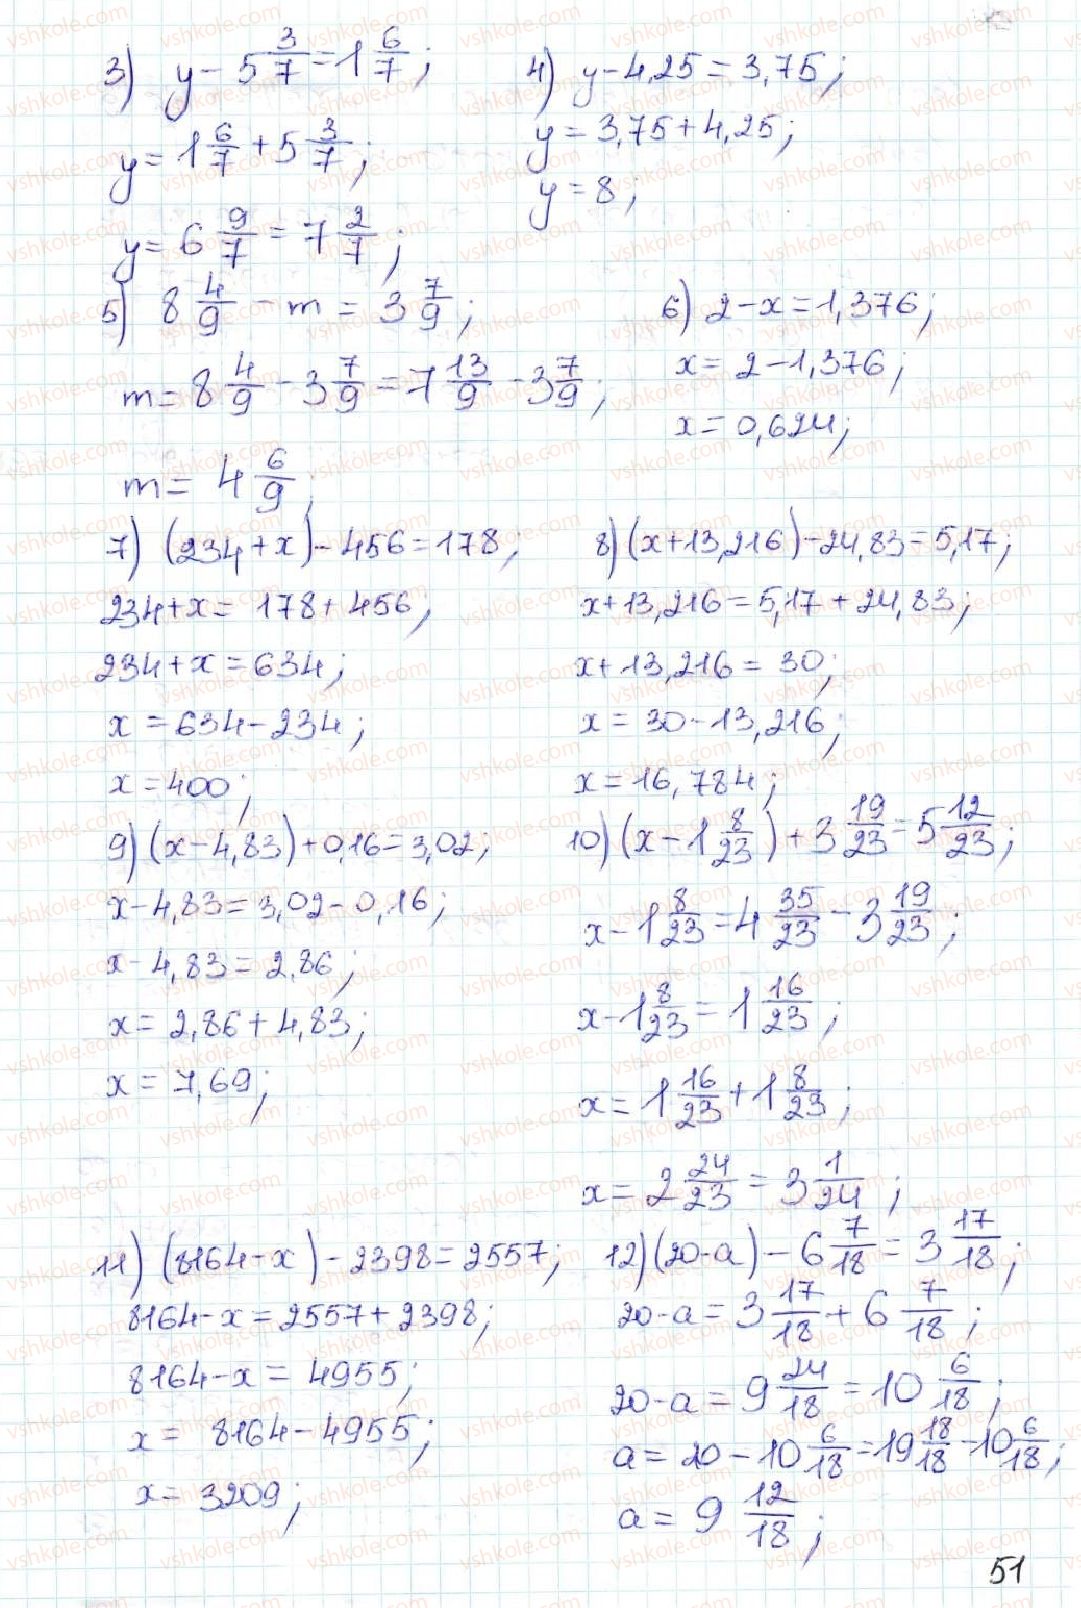 3) y - 5 3/7 = 1 6/7;
y = 1 6/7 + 5 3/7;
y = 6 9/7 = 7 2/7;
4) y - 4,25 = 3,75;
y = 3,75 + 4,25;
y = 8;
5) 8 4/9 - m = 3 7/9;
m = 8 4/9 - 3 7/9 = 7 13/9 - 3 7/9;
m = 4 6/9;
6) 2 - x = 1,376;
x = 2 - 1,376;
x = 0,624;
7) (234 + x) - 456 = 178;
234 + x = 178 + 456;
234 + x = 634;
x = 634 - 234;
x = 400;
8) (x + 13,216) - 24,83 = 5,17;
x + 13,216 = 5,17 + 24,83;
x + 13,216 = 30;
x = 30 - 13,216;
x = 16,784;
9) (x - 4,83) + 0,16 = 3,02;
x - 4,83 = 3,02 - 0,16;
x - 4,83 = 2,86;
x = 2,86 + 4,83;
x = 7,69;
10) (x - 1 8/23) + 3 19/23 = 5 12/23;
x - 1 8/23 = 4 35/23 - 3 19/23;
x - 1 8/23 = 1 16/23;
x = 1 16/23 + 1 8/23;
x = 2 24/23 = 3 1/24;
11) (8164 - x) - 2398 = 2557;
8164 - x = 2557 + 2398;
8164 - x = 4955;
x = 8164 - 4955;
x = 3209;
12) (20 - a) - 6 7/18 = 3 17/18;
20 - a = 3 17/18 + 6 7/18;
20 - a = 9 24/18 = 10 6/18;
a = 20 - 10 6/18 = 19 18/18 - 10 6/18;
a = 9 12/18;
51
vshkole.com